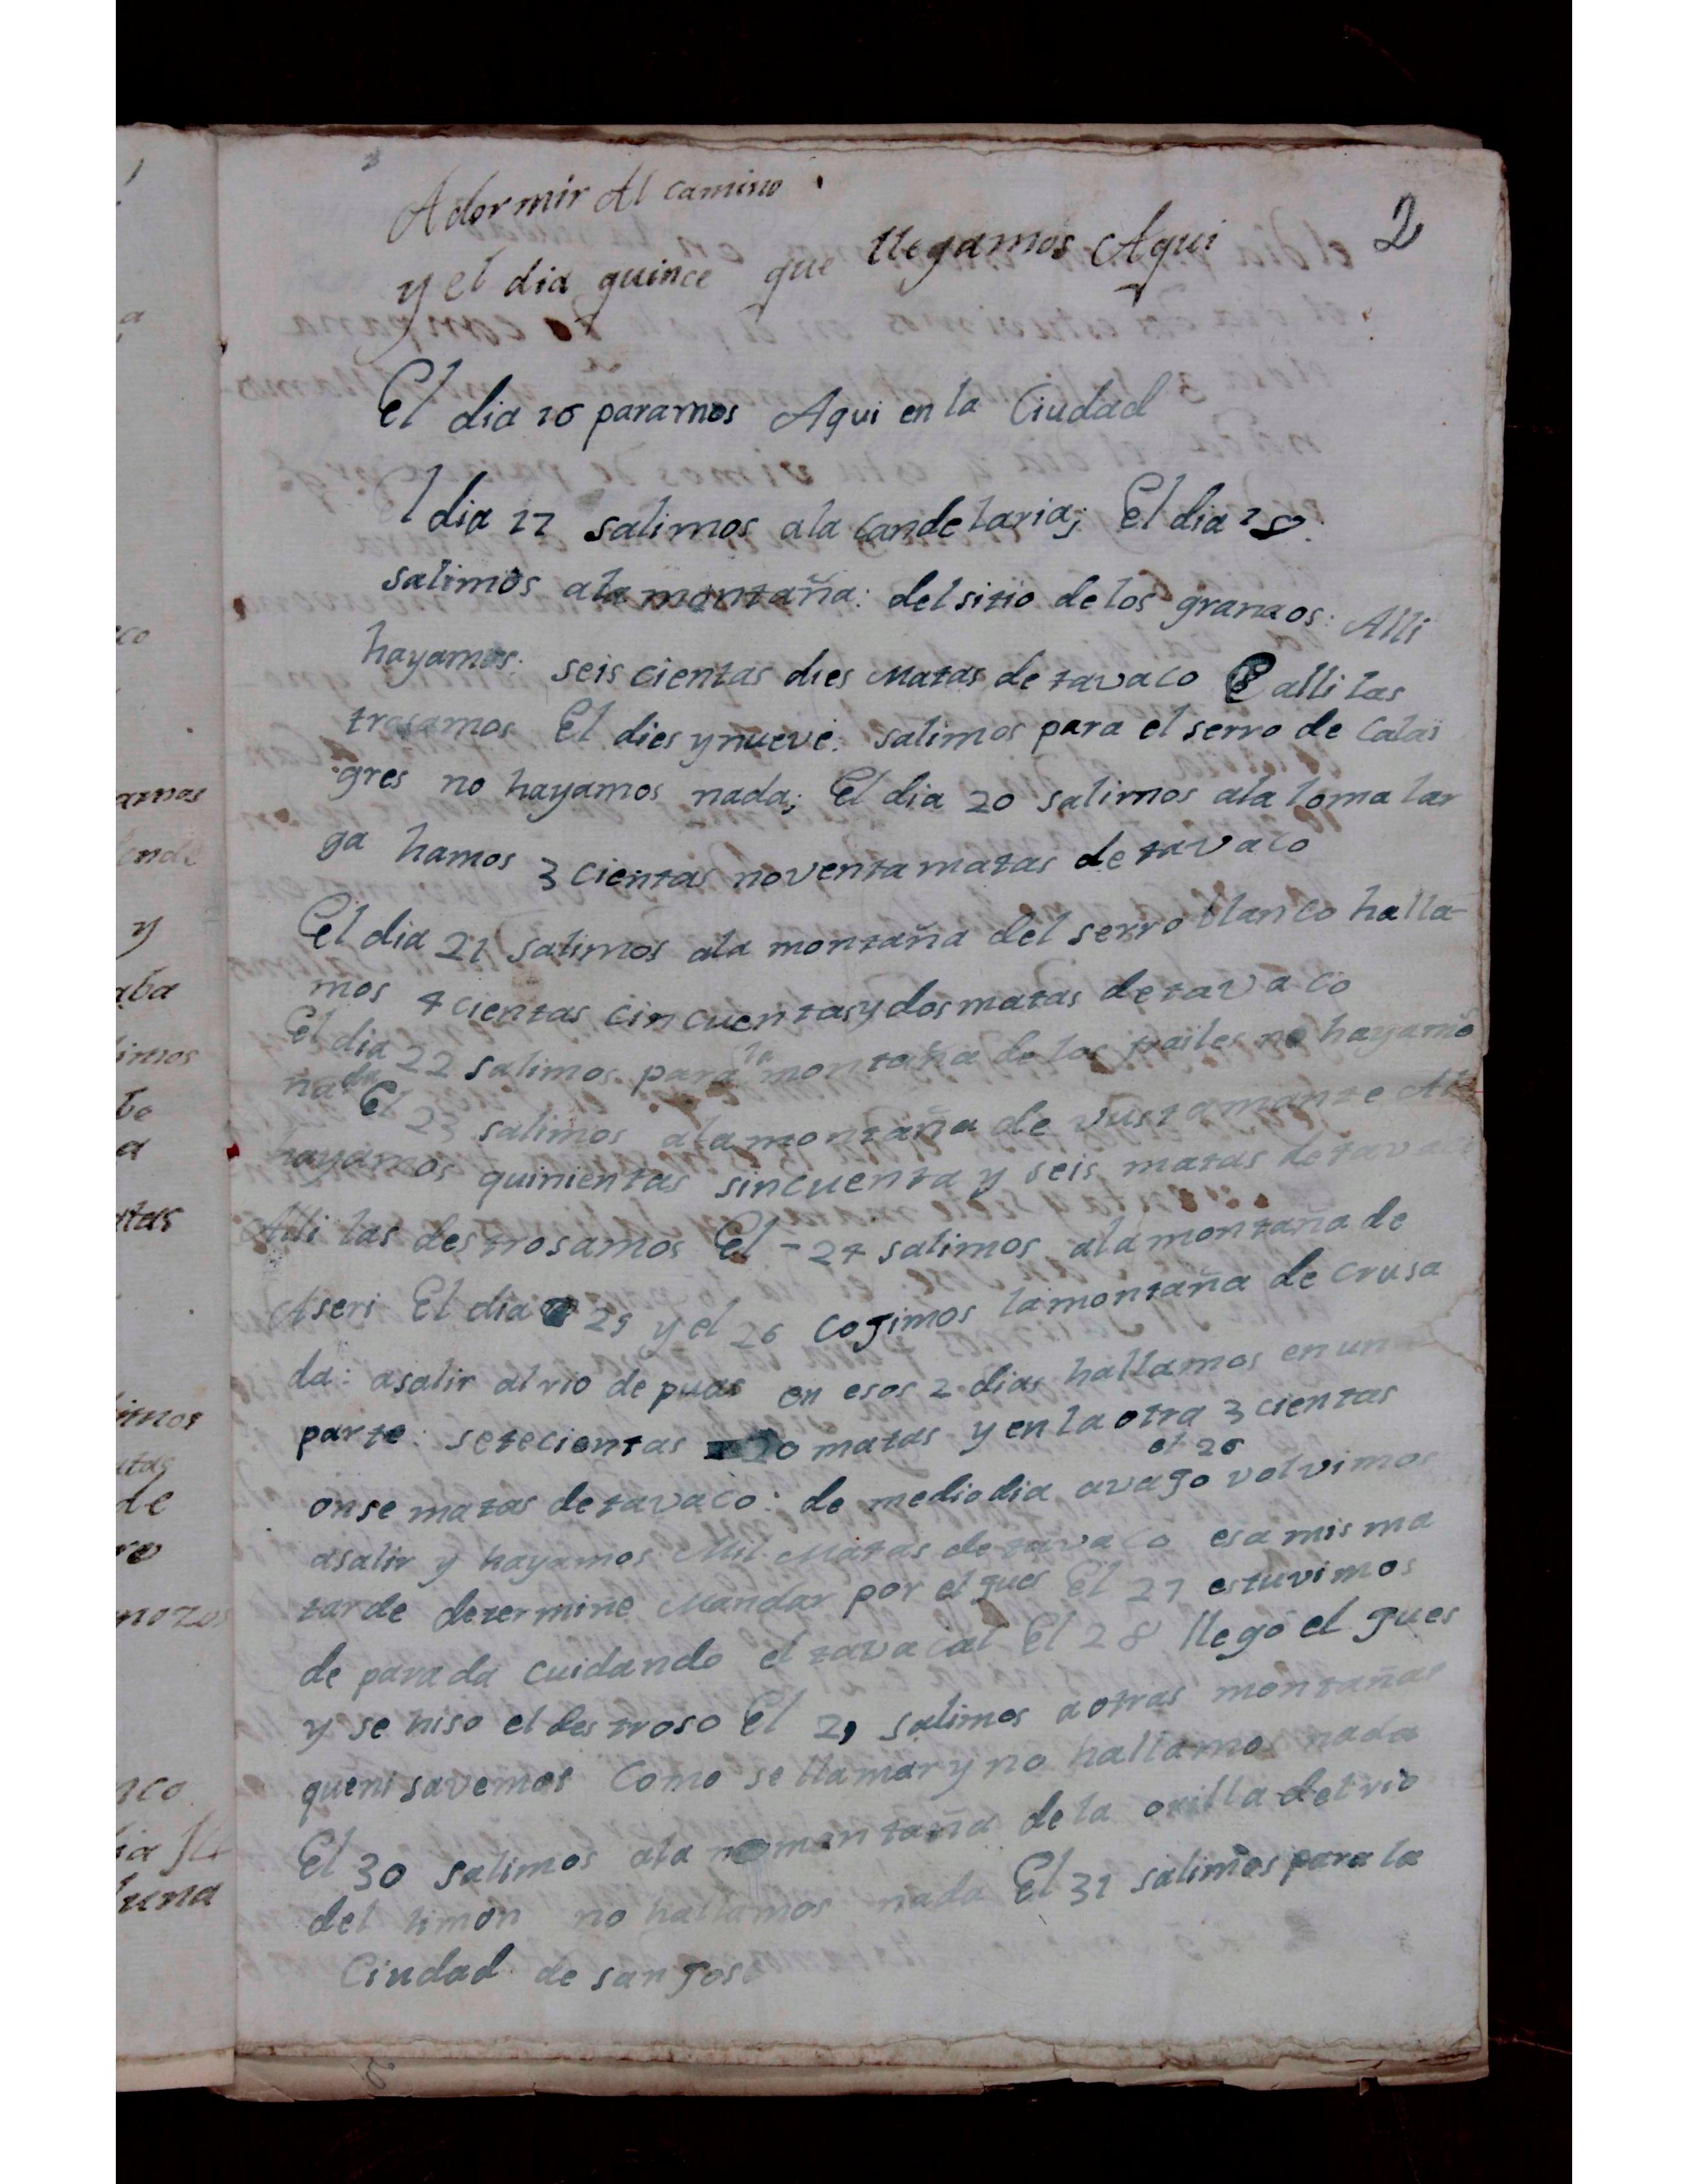 2
A dormir Al camino
y el dia quince que llegamos Aqui
El dia 16 paramos Aqui en la Ciudad
El dia 17 salimos a la candelaria; El dia 18.
salimos a la montaña: del sitio de los granaos: Alli
hayamos. seis cientas dies Matas de tavaco alli las
trosamos El dies y nueve: salimos para el serro de Calai
gres no hayamos nada; El dia 20 salimos a la loma lar
ga hamos 3 cientas noventa matas de tavaco
El dia 21 salimos a la montaña del serro blanco halla-
mos 4 cientas cincuentas y dos matas de tavaco
El dia 22 salimos para la montaña de los frailes no hayamos
nada El 23 salimos a la montaña de vustamante
hayamos quinientas sincuenta y seis matas de tavaco
Alli las destrosamos El - 24 salimos a la montaña de
Aseri El dia 25 y el 26 cojimos la montaña de crusa
da: a salir al rio de puas en esos 2 dias hallamos en un
parte: setecientas matas y en la otra 3 cientas
onse matas de tavaco: de mediodia avajo el 26 volvimos
a salir y hayamos Mil Matas de tavaco esa misma
tarde determine Mandar por el jues El 27 estuvimos
de parada cuidando el tavacal El 28 llegó el jues
y se hiso el destroso El 29 salimos a otras montañas
que ni savemos Como se llamar y no hallamos nada
El 30 salimos a la montaña de la orilla del rio
del limon no hallamos nada El 31 salimos para la
Ciudad de san Jose